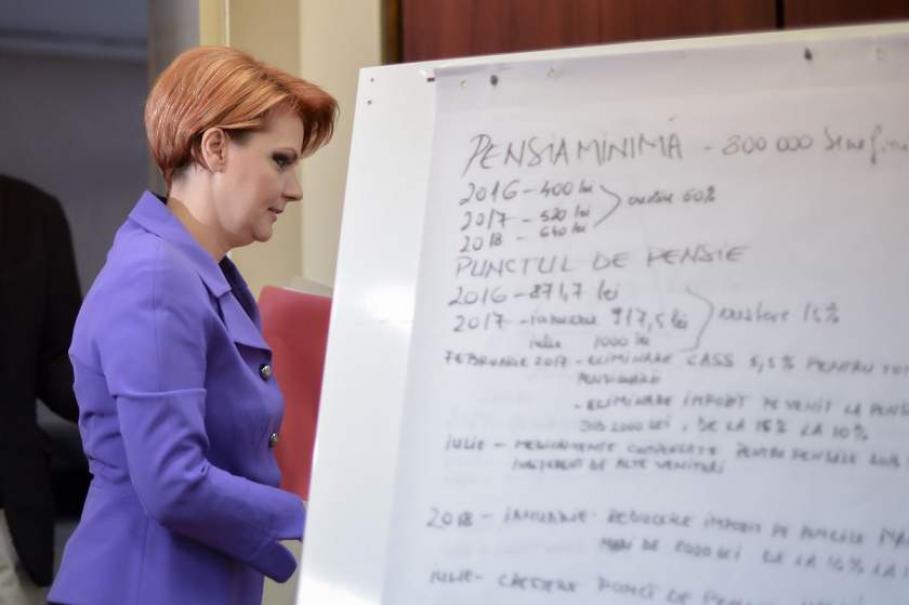 PENSIA MINIMĂ - 800 000
2016 - 400 lei
2017 - 520 lei
2018 - 640 lei
creștere 60%
PUNCTUL DE PENSIE
2016 - 871,7 lei
2017 - ianuarie 917,5 lei
iulie 1000 lei
creștere 15%
FEBRUARIE 2017 - ELIMINARE CASS 5,5% PENTRU
PENSIONARI
- ELIMINARE IMPOZIT PE VENIT LA
SUB 2000 LEI, DE LA 16% LA 10%
IULIE - MEDICAMENTE COMPENSATE PENTRU PENSIILE SUB
INDIFERENT DE ALTE VENITURI
2018 - IANUARIE - REDUCERE IMPOZIT PE PENSIILE MAI
MARI DE 2000 LEI DE LA 16% LA
IULIE - CREȘTERE PUNCT DE